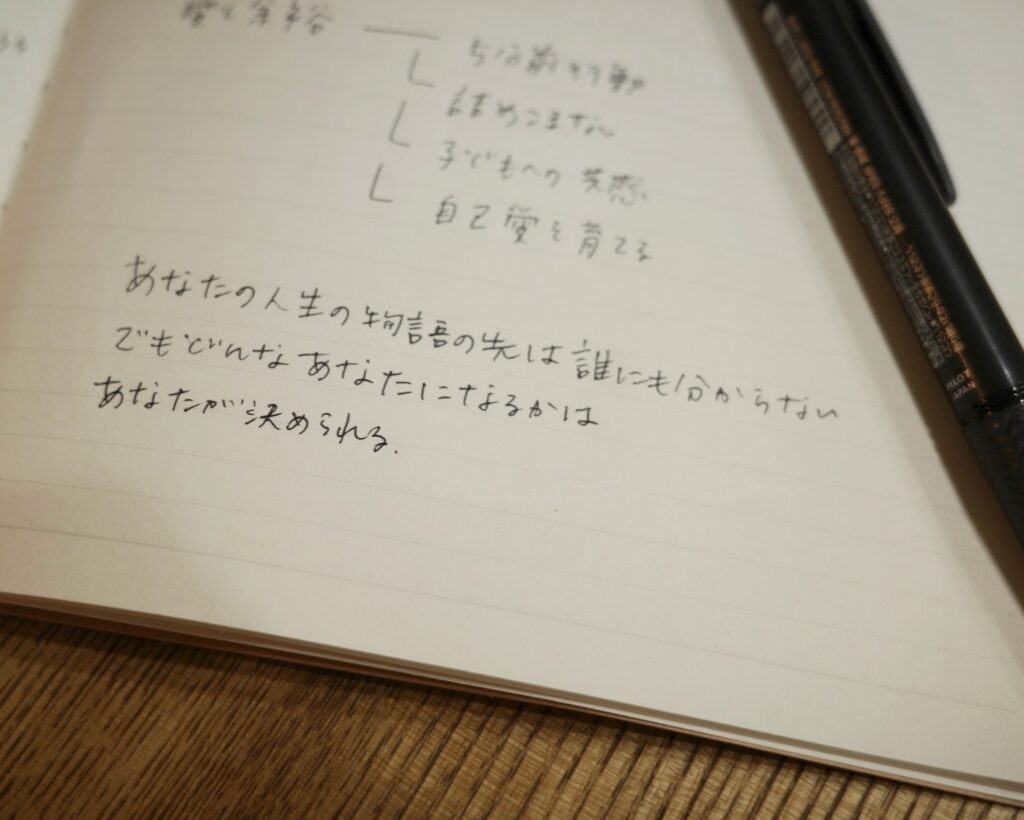 愛と余裕
5分前行動
詰めこまない
子どもへの共感
自己愛を育てる
あなたの人生の物語の先は誰にも分からない
でもどんなあなたになるかは
あなたが決められる.
PILOT
JAPAN